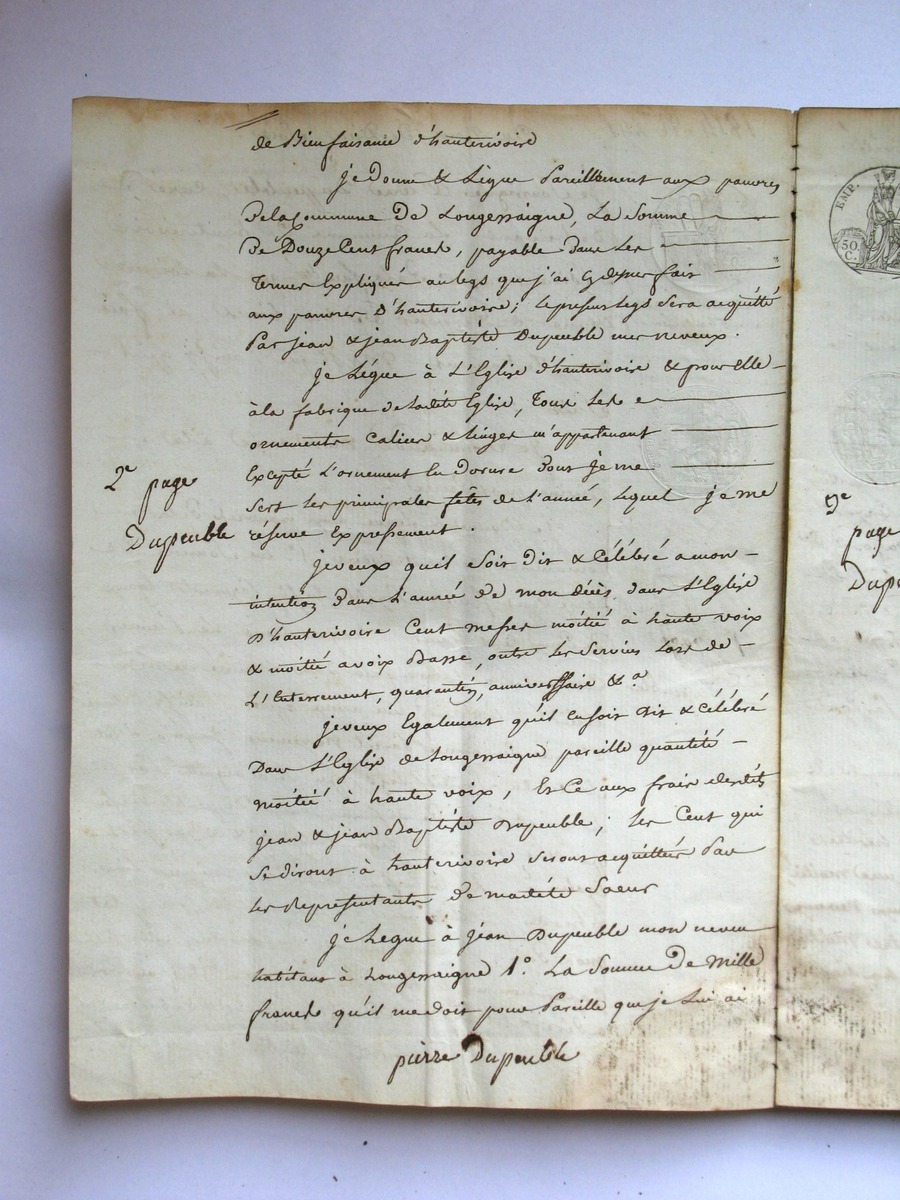 de Bienfaisance d'hauterivoire
je Donne & Légue Pareillement aux pauvres
De la Commune De Longessaigne, La Somme
De Douze Cent francs, payable dans les
Termes Expliqués au legs que j'ai cy dessus fait
aux pauvres D'hauterivoire; le present legs sera acquitté
Par jean & jean Baptiste Dupeuble mes neveux.
je Légue à L'Eglise d'hauterivoire & pour Elle
à la fabrique de Ladite Eglise, Tous les
ornements Calices & linges m'appartenant
Excepté L'ornement En Dorure dont je me
Sers les principales fêtes de l'année, lequel je me
réserve Expressement.
je veux qu'il Soit Dit & Célébré a mon
intention Dans L'année De mon Décès dans L'Eglise
D'hauterivoire Cent messes moitié à haute voix
& moitié a voix Basse, outre les Services Lors de
L'Enterrement, quarantin, anniverssaire & a
je veux Egalement qu'il en soit Dit & Célébré
Dans L'Eglise de Longessaigne pareille quantité
moitié à haute voix, Et Ce aux frais desdits
jean & jean Baptiste Dupeuble; les Cent qui
se diront à hauterivoire seront acquittées Par
les Représentants De madite Soeur
je Legue à jean Dupeuble mon neveu
habitant à Longessaigne 1° La Somme De Mille
francs qu'il me doit pour Pareille que je Lui ai
pierre Dupeuble
2e
page
Dupeuble
EMP.
50
C.
3e
page